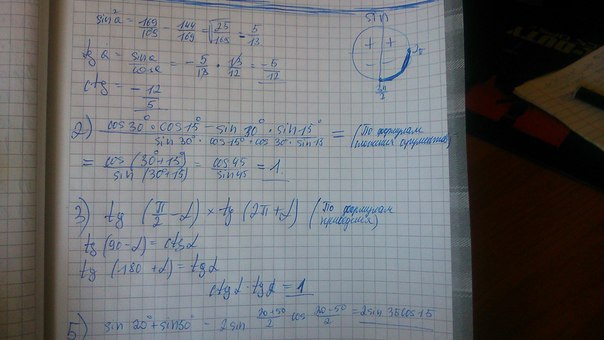 sin²a = 169/169 - 144/169 = √25/169 = 5/13
tg a = sin a / cos a = -5/13 · 13/12 = -5/12
ctg = -12/5
sin
2) cos 30° · cos 15° - sin 30° · sin 15° / sin 30° · cos 15° · cos 30 · sin 15 = (По формулам
= cos (30° + 15°) / sin (30° + 15) = cos 45 / sin 45 = 1
3) tg (π/2 - α) × tg (2π + α) (По формулам приведения)
tg (90 - α) = ctg α
tg (180 + α) = tg α
ctg α · tg α = 1
5) sin 20° + sin 50° - 2 sin 20+50/2 cos 20-50/2 = 2 sin 35 cos 15